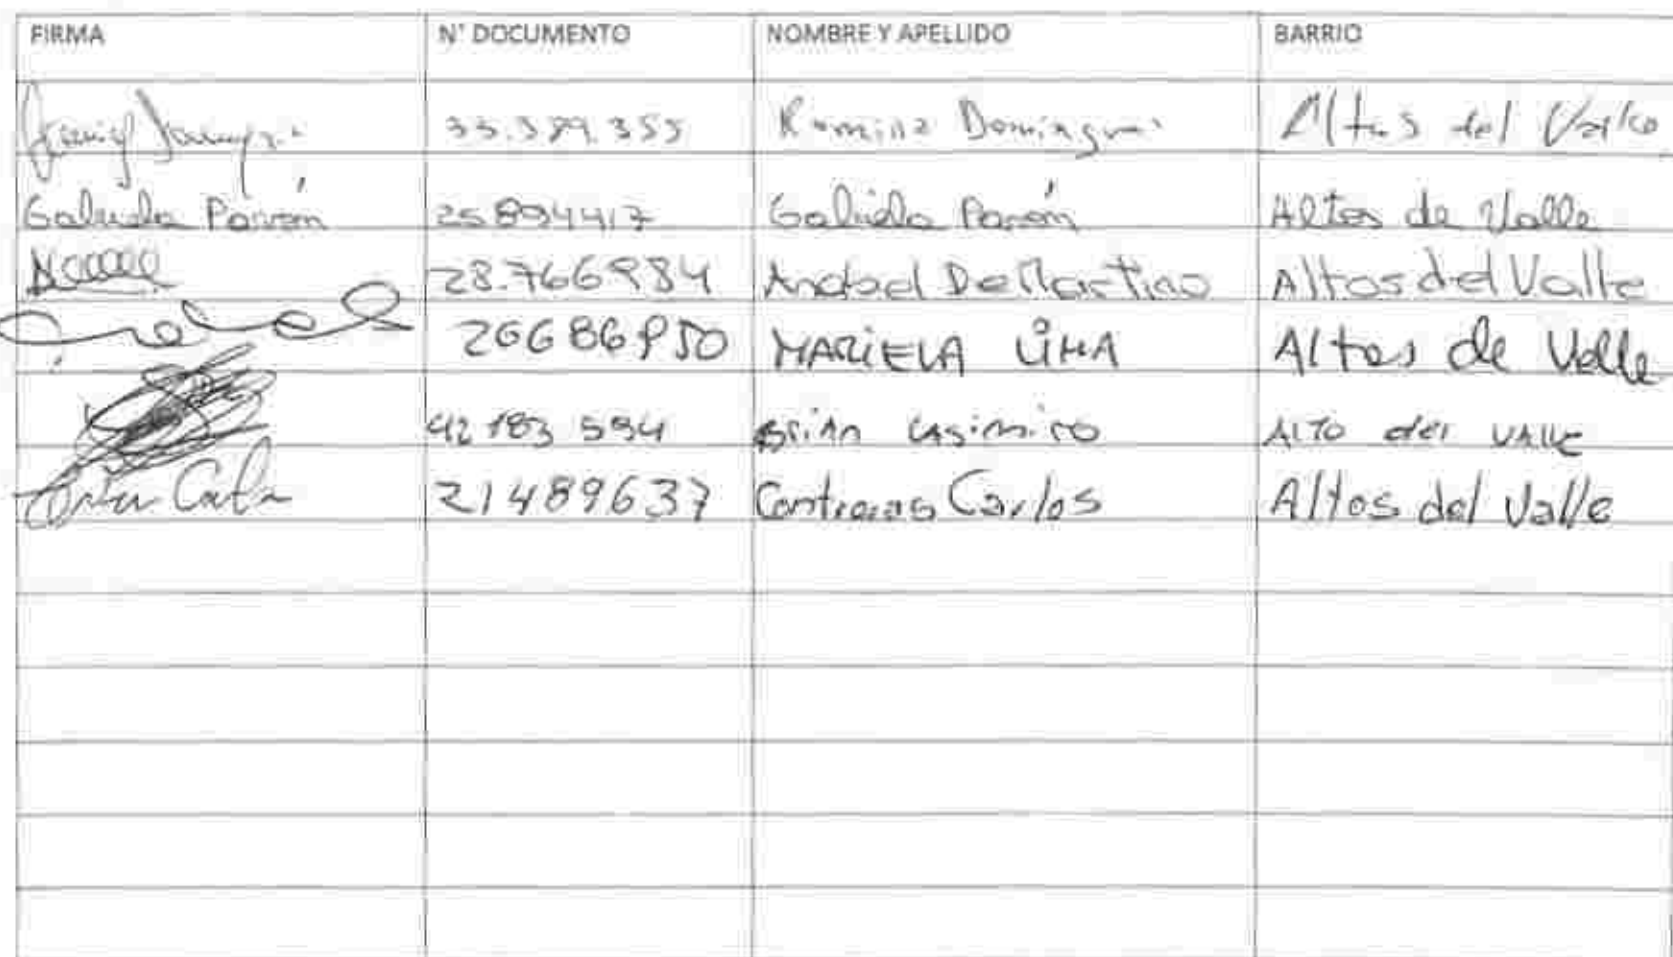 FIRMA N° DOCUMENTO NOMBRE Y APELLIDO BARRIO
33.389.355 Romina Domingue Altos del Valle
Gabriela Pavón 25894417 Gabriela Pavón Altos de Valle
28.766984 DeMartino Altos del Valle
26686950 MARIELA LIMA Altos de Valle
42183594 Brian Casimiro ALTO del VALLE
21489637 Contreras Carlos Altos del Valle